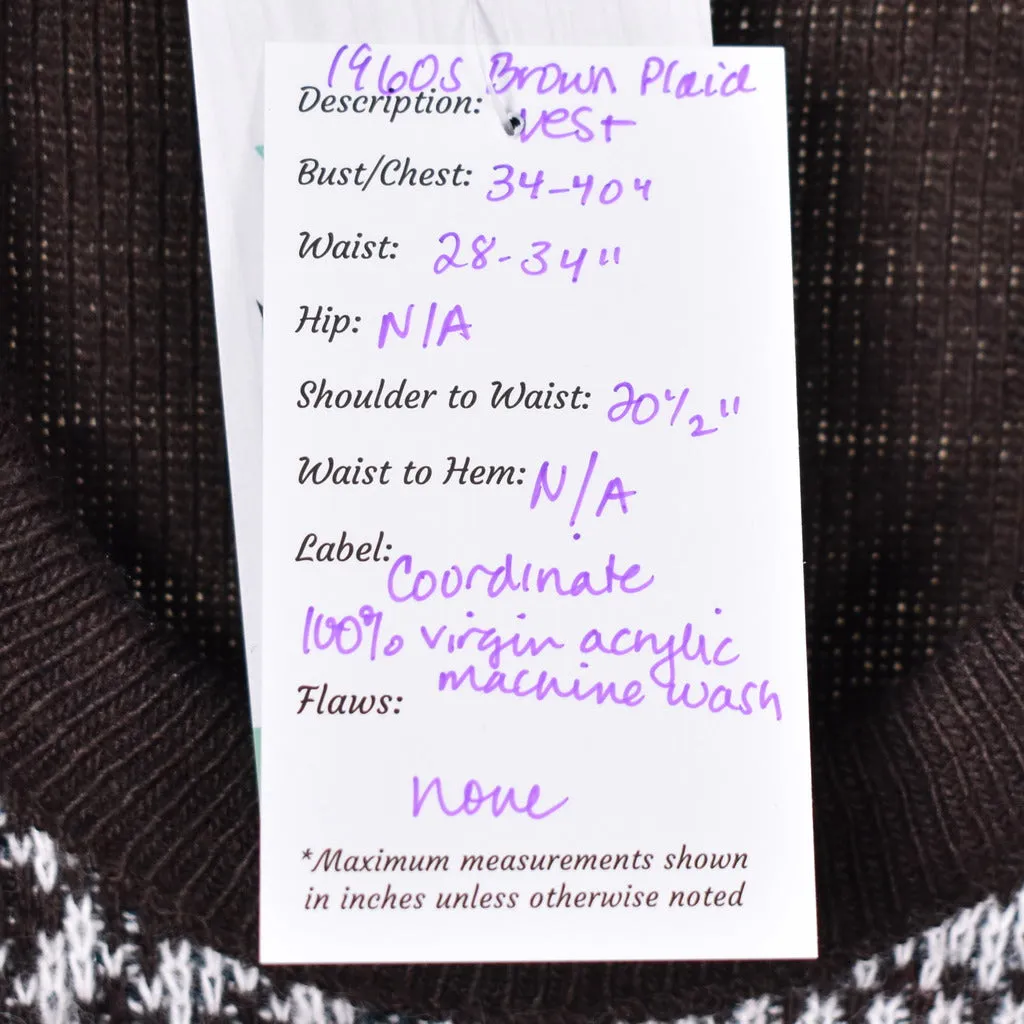 1960s Brown Plaid
Description: vest
Bust/Chest: 34-40"
Waist: 28-34"
Hip: N/A
Shoulder to Waist: 20 1/2"
Waist to Hem: N/A
Label: Coordinate
100% virgin acrylic
machine wash
Flaws:
none
*Maximum measurements shown
in inches unless otherwise noted